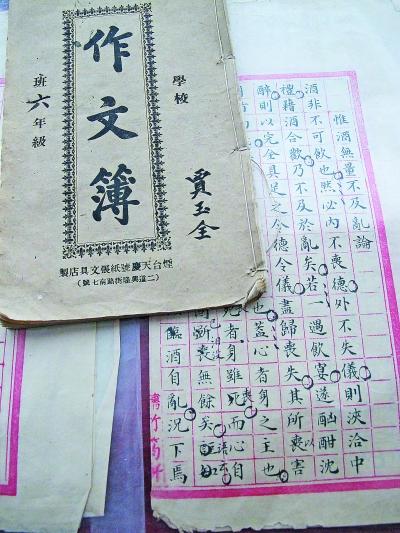 學校
賈玉全
作文簿
班六年級
煙台天慶號紙張文具店製
(二道興隆街路南七號)
惟酒無量不及亂論
酒非不可飲也然必内不喪德外不失儀則浹洽中
禮藉酒合歡乃不及於亂矣若一過飲宴遂酗酣沈
醉則以完全具足之令德令儀盡歸喪失其所以喪害
也蓋心者身之主也
死者身雖死而心自
斷喪無餘矣
臨酒自亂況下焉